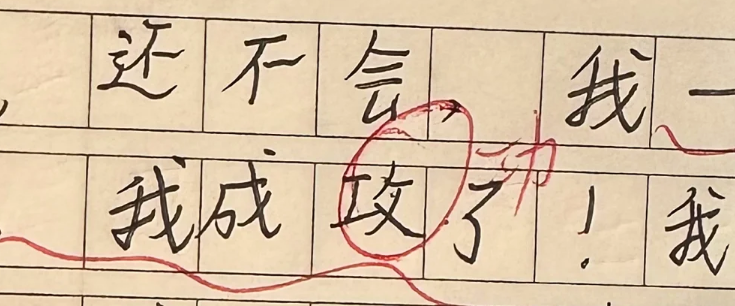 ，还不会，我一
功
我成攻了！我